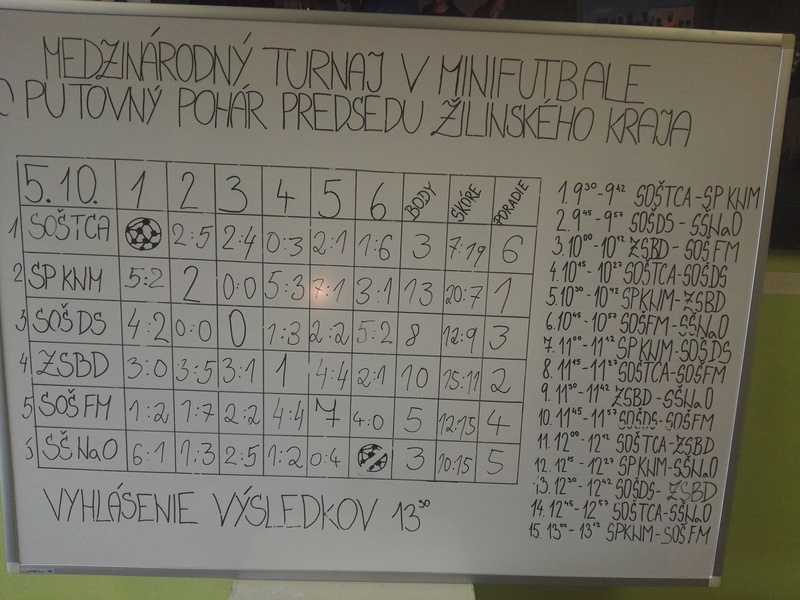 MEDZINÁRODNÝ TURNAJ V MINIFUTBALE
O PUTOVNÝ POHÁR PREDSEDU ŽILINSKÉHO KRAJA
5.10. 1 2 3 4 5 6 BODY SKÓRE PORADIE
1 SOŠTCA 2:5 2:4 0:3 2:1 1:6 3 7:19 6
2 SP KNM 5:2 2 0:0 5:3 7:1 3:1 13 20:7 1
3 SOŠ DS 4:2 0:0 0 1:3 2:2 5:2 8 12:9 3
4 ZSBD 3:0 3:5 3:1 1 4:4 2:1 10 15:11 2
5 SOŠ FM 1:2 1:7 2:2 4:4 7 4:0 5 12:15 4
SŠ NaO 6:1 1:3 2:5 1:2 0:4 3 10:15 5
VYHLÁSENIE VÝSLEDKOV 13³⁰
1. 9³⁰-9⁴² SOŠTCA-SP KNM
2. 9⁴⁵-9⁵⁷ SOŠDS-SŠNaO
3. 10⁰⁰-10¹² ZSBD-SOŠFM
4. 10¹⁵-10²⁷ SOŠTCA-SOŠDS
5. 10³⁰-10⁴² SPKNM-ZSBD
6. 10⁴⁵-10⁵⁷ SOŠFM-SŠNaO
7. 11⁰⁰-11¹² SPKNM-SOŠDS
8. 11¹⁵-11²⁷ SOŠTCA-SOŠFM
9. 11³⁰-11⁴² ZSBD-SŠNaO
10. 11⁴⁵-11⁵⁷ SOŠDS-SOŠFM
11. 12⁰⁰-12¹² SOŠTCA-ZSBD
12. 12¹⁵-12²⁷ SPKNM-SŠNaO
13. 12³⁰-12⁴² SOŠDS-ZSBD
14. 12⁴⁵-12⁵⁷ SOŠTCA-SŠNaO
15. 13⁰⁰-13¹² SPKNM-SOŠFM